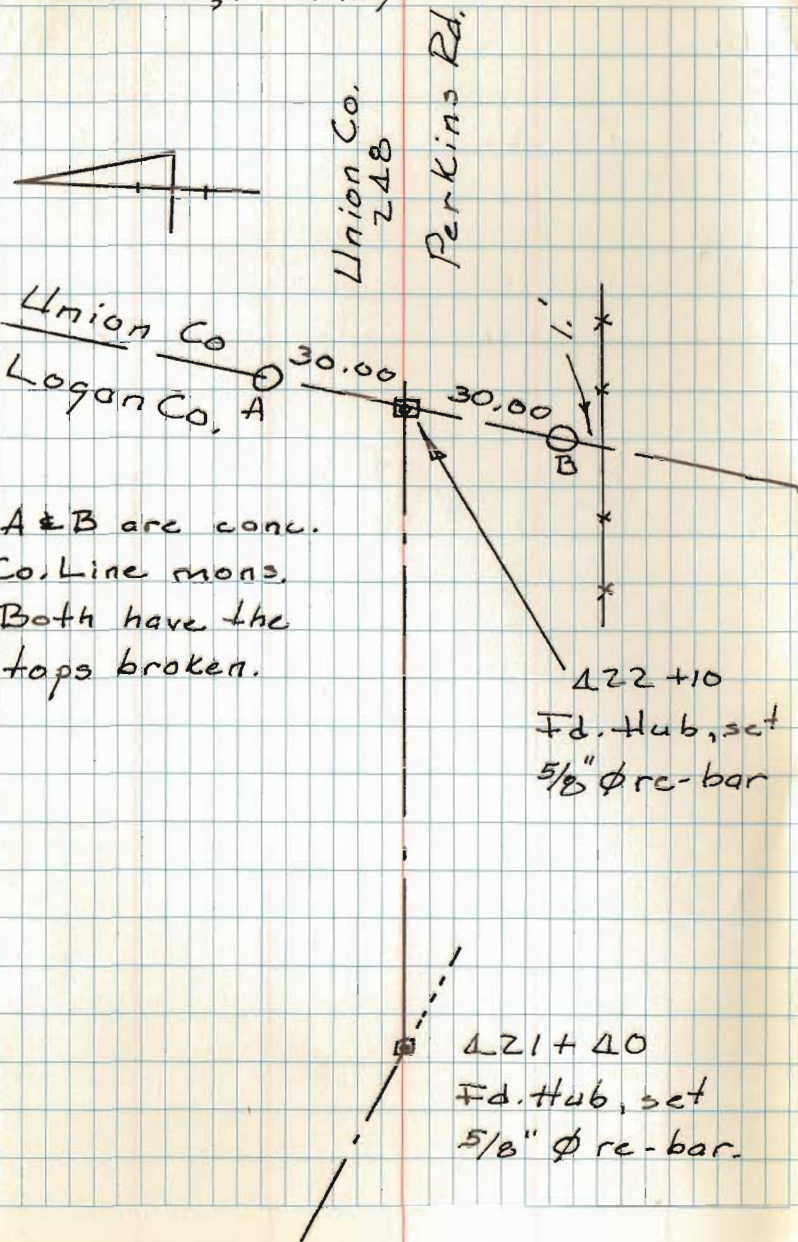 Union Co.
248
Perkins Rd.
Union Co
Logan Co.
A
30.00
30.00
B
1.'
A & B are conc.
Co. Line mons.
Both have the
tops broken.
422 +10
Fd. Hub, set
5/8" ϕ re-bar
421 + 40
Fd. Hub, set
5/8" ϕ re-bar.